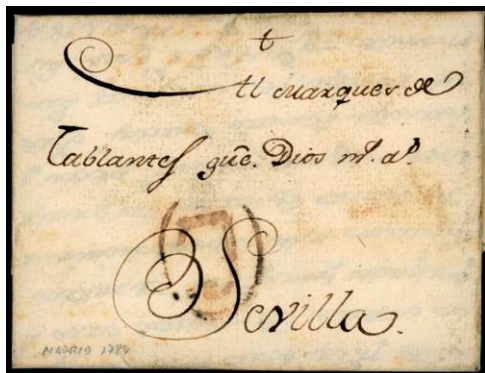 t
Al Marques de
Tablantes gūe. Dios ms. as.
Sevilla.
MADRID 1784